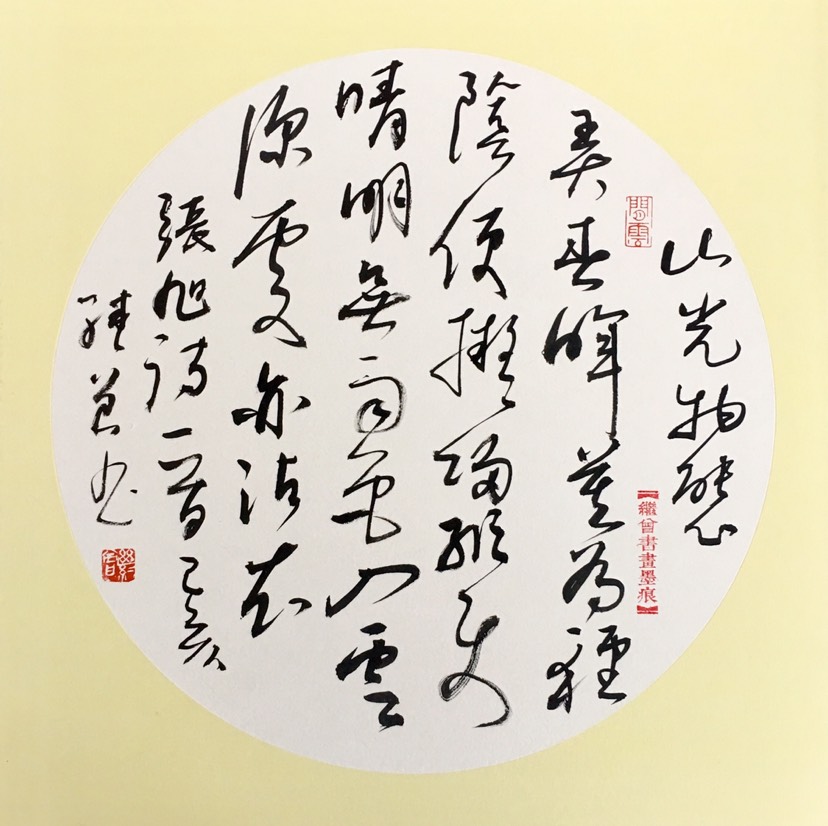 山光物態
弄春暉莫為輕
陰便擬歸縱使
晴明無雨色入雲
深處亦沾衣
張旭詩一首己亥
繼曾書
閒雲
【繼曾書畫墨痕】
繼曾